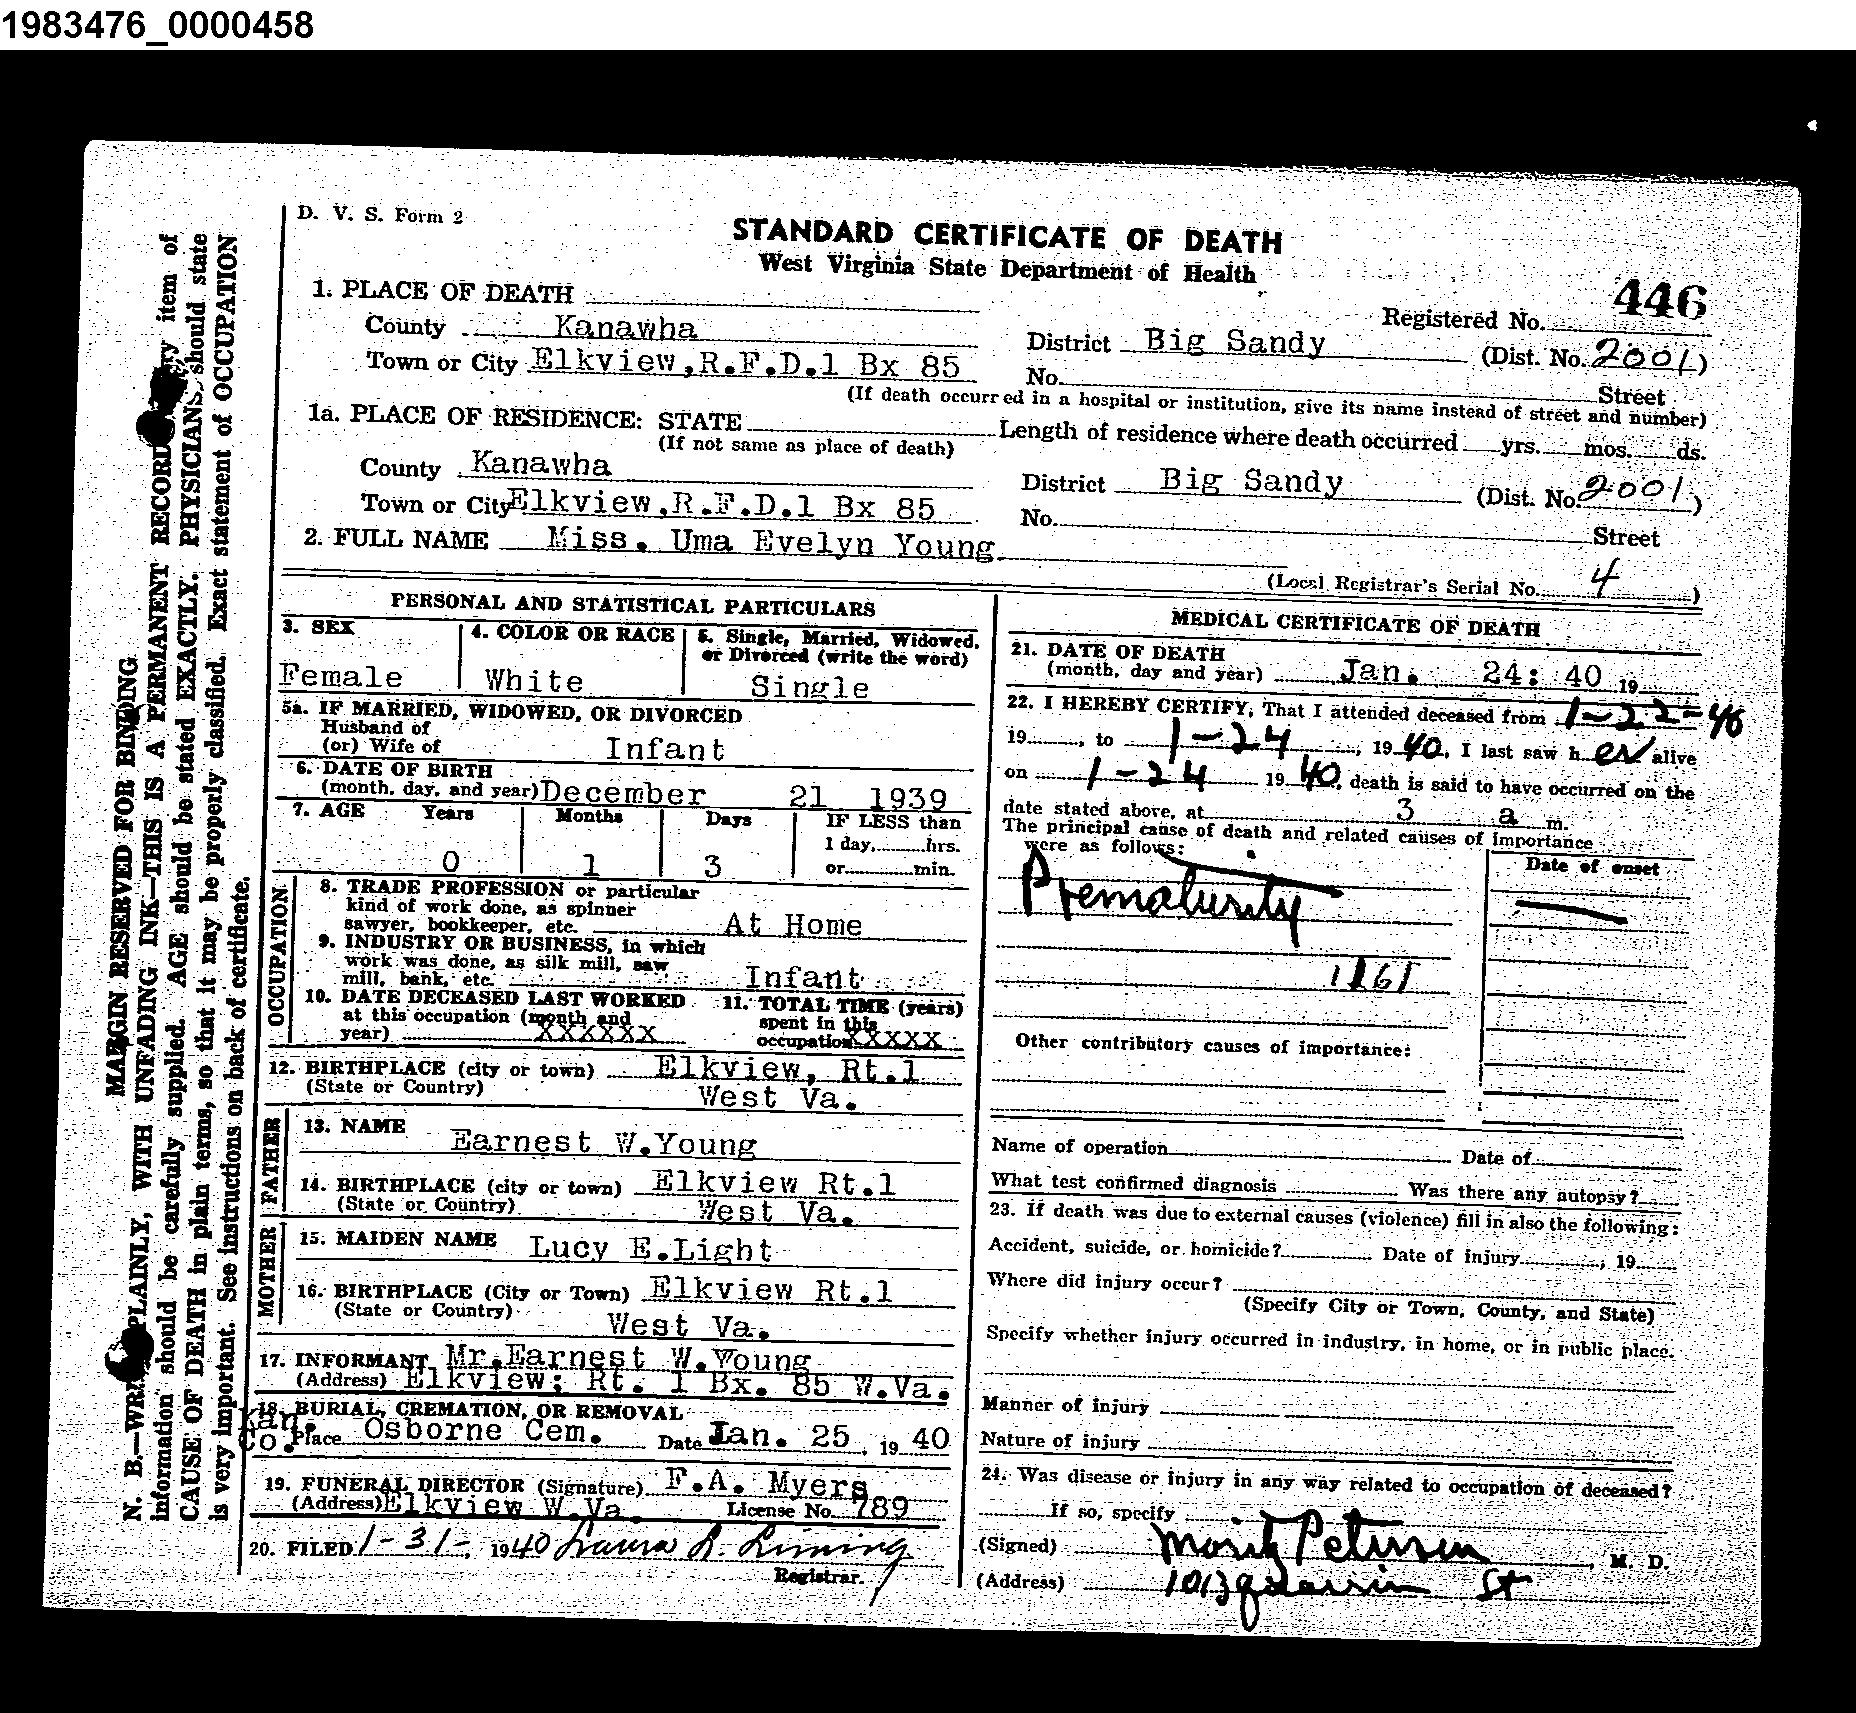 1983476_0000458
D. V. S. Form 2
STANDARD CERTIFICATE OF DEATH
West Virginia State Department of Health
446
1. PLACE OF DEATH
Registered No.
County Kanawha
District Big Sandy (Dist. No. 2001)
Town or City Elkview,R.F.D.1 Bx 85
No. Street
(If death occurred in a hospital or institution, give its name instead of street and number)
1a. PLACE OF RESIDENCE: STATE
(If not same as place of death)
Length of residence where death occurred yrs. mos. ds.
County Kanawha
District Big Sandy (Dist. No. 2001)
Town or City Elkview,R.F.D.1 Bx 85
No. Street
2. FULL NAME Miss. Uma Evelyn Young
(Local Registrar's Serial No. 4)
PERSONAL AND STATISTICAL PARTICULARS
3. SEX
Female
4. COLOR OR RACE
White
5. Single, Married, Widowed,
or Divorced (write the word)
Single
5a. IF MARRIED, WIDOWED, OR DIVORCED
Husband of
(or) Wife of Infant
6. DATE OF BIRTH
(month, day, and year) December 21 1939
7. AGE Years Months Days IF LESS than
1 day, hrs.
0 1 3 or min.
OCCUPATION
8. TRADE PROFESSION or particular
kind of work done, as spinner
sawyer, bookkeeper, etc. At Home
9. INDUSTRY OR BUSINESS, in which
work was done, as silk mill, saw
mill, bank, etc. Infant
10. DATE DECEASED LAST WORKED
at this occupation (month and
year) XXXXXX
11. TOTAL TIME (years)
spent in this
occupation XXXXX
12. BIRTHPLACE (city or town) Elkview, Rt.1
(State or Country) West Va.
FATHER
13. NAME Earnest W.Young
14. BIRTHPLACE (city or town) Elkview Rt.1
(State or Country) West Va.
MOTHER
15. MAIDEN NAME Lucy E.Light
16. BIRTHPLACE (City or Town) Elkview Rt.1
(State or Country) West Va.
17. INFORMANT Mr.Earnest W.Young
(Address) Elkview; Rt. 1 Bx. 85 W.Va.
18. BURIAL, CREMATION, OR REMOVAL
Kan.
Co. Place Osborne Cem. Date Jan. 25, 19 40
19. FUNERAL DIRECTOR (Signature) F.A. Myers
(Address) Elkview W.Va. License No. 789
20. FILED 1-31-, 1940 Laura L. Liming
Registrar.
MEDICAL CERTIFICATE OF DEATH
21. DATE OF DEATH
(month, day and year) Jan. 24: 40 19
22. I HEREBY CERTIFY, That I attended deceased from 1-22-40
19, to 1-24, 19 40, I last saw h er alive
on 1-24 19 40, death is said to have occurred on the
date stated above, at 3 a m.
The principal cause of death and related causes of importance
were as follows:
Date of onset
Prematurity
1161
Other contributory causes of importance:
Name of operation Date of
What test confirmed diagnosis Was there any autopsy?
23. If death was due to external causes (violence) fill in also the following:
Accident, suicide, or homicide? Date of injury, 19
Where did injury occur?
(Specify City or Town, County, and State)
Specify whether injury occurred in industry, in home, or in public place.
Manner of injury
Nature of injury
24. Was disease or injury in any way related to occupation of deceased?
If so, specify
(Signed) Moritz Petersen, M. D.
(Address) St
MARGIN RESERVED FOR BINDING
N. B.—WRITE PLAINLY, WITH UNFADING INK—THIS IS A PERMANENT RECORD. Every item of
information should be carefully supplied. AGE should be stated EXACTLY. PHYSICIANS should state
CAUSE OF DEATH in plain terms, so that it may be properly classified. Exact statement of OCCUPATION
is very important. See instructions on back of certificate.